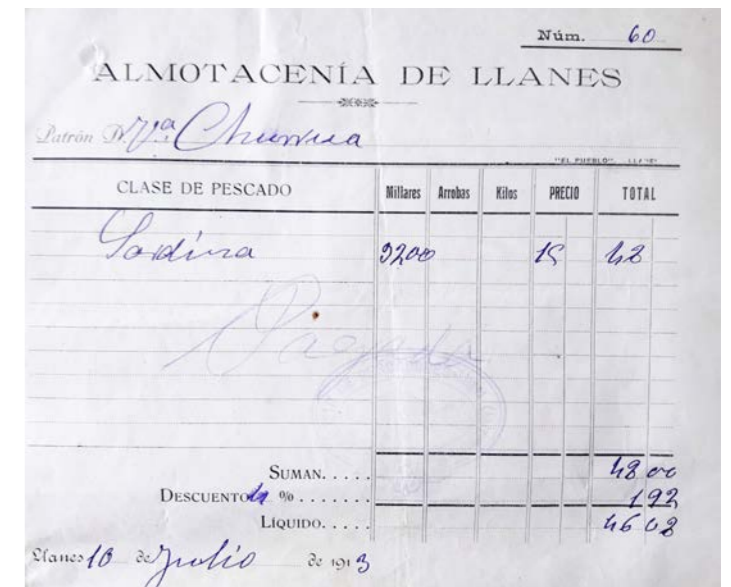 Núm. 60
ALMOTACENÍA DE LLANES
Patrón D.
"EL PUEBLO".-LLANES
CLASE DE PESCADO Millares Arrobas Kilos PRECIO TOTAL
Sardina 3200 15 48
Pagada
SUMAN. . . . . 48 00
DESCUENTO 4 % . . . . . . . 1 92
LÍQUIDO. . . . . 46 08
Llanes 10 de Julio de 1913